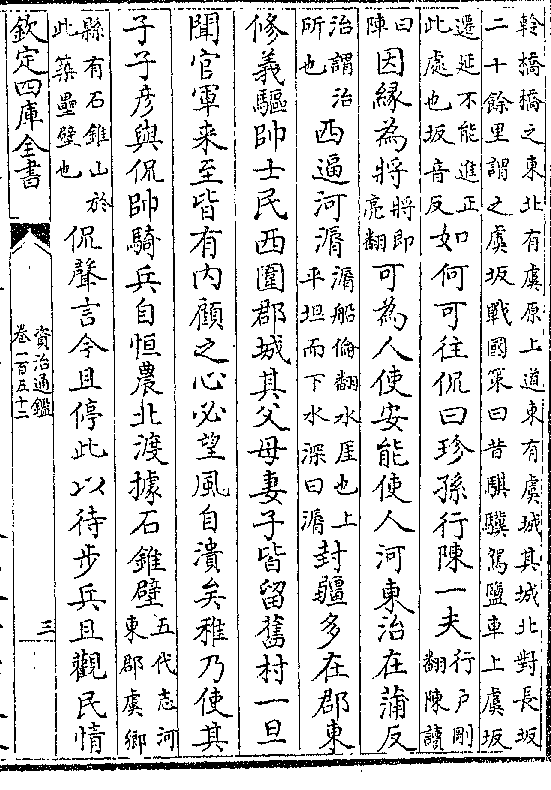 幹橋橋之東北有虞原上道東有虞城其城北對長坂
二十餘里謂之虞坂戰國策曰昔騏驥駕鹽車上虞坂
遷延不能進正
此處也坂音反如何可往侃曰珍孫行陳一夫行戶剛
翻陳讀
曰陳因緣為將將即
亮翻可為人使安能使人河東治在蒲反
治謂治
所也西逼河漘漘船倫翻水厓也上
平坦而下水深曰漘封疆多在郡東
修義驅帥士民西圍郡城其父母妻子皆留舊村一旦
聞官軍来至皆有内顧之心必望風自潰矣稚乃使其
子子彦與侃帥騎兵自恒農北渡據石錐壁五代志河
東郡虞鄉
縣有石錐山於
此築壘壁也侃聲言今且停此以待步兵且觀民情
欽定四庫全書
資治通鑑
卷一百五十二
三